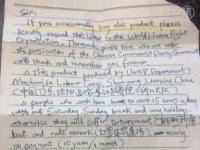 Sir:
If you occasionally buy this product, please
kindly resend this letter to the World Human Right
Organization. Thousands people here who are under
the persecution of the Chinese Communist Party Government
will thank and remember you forever.
This product produced by Unit 8, Department 2,
Masanjia Labour Camp,
people who work here have to work 15 hours a day
with out Saturday, Sunday break and any holidays.
otherwise, they will suffer torturement
beat and rude remark nearly
no payment (10 yuan/1 month)